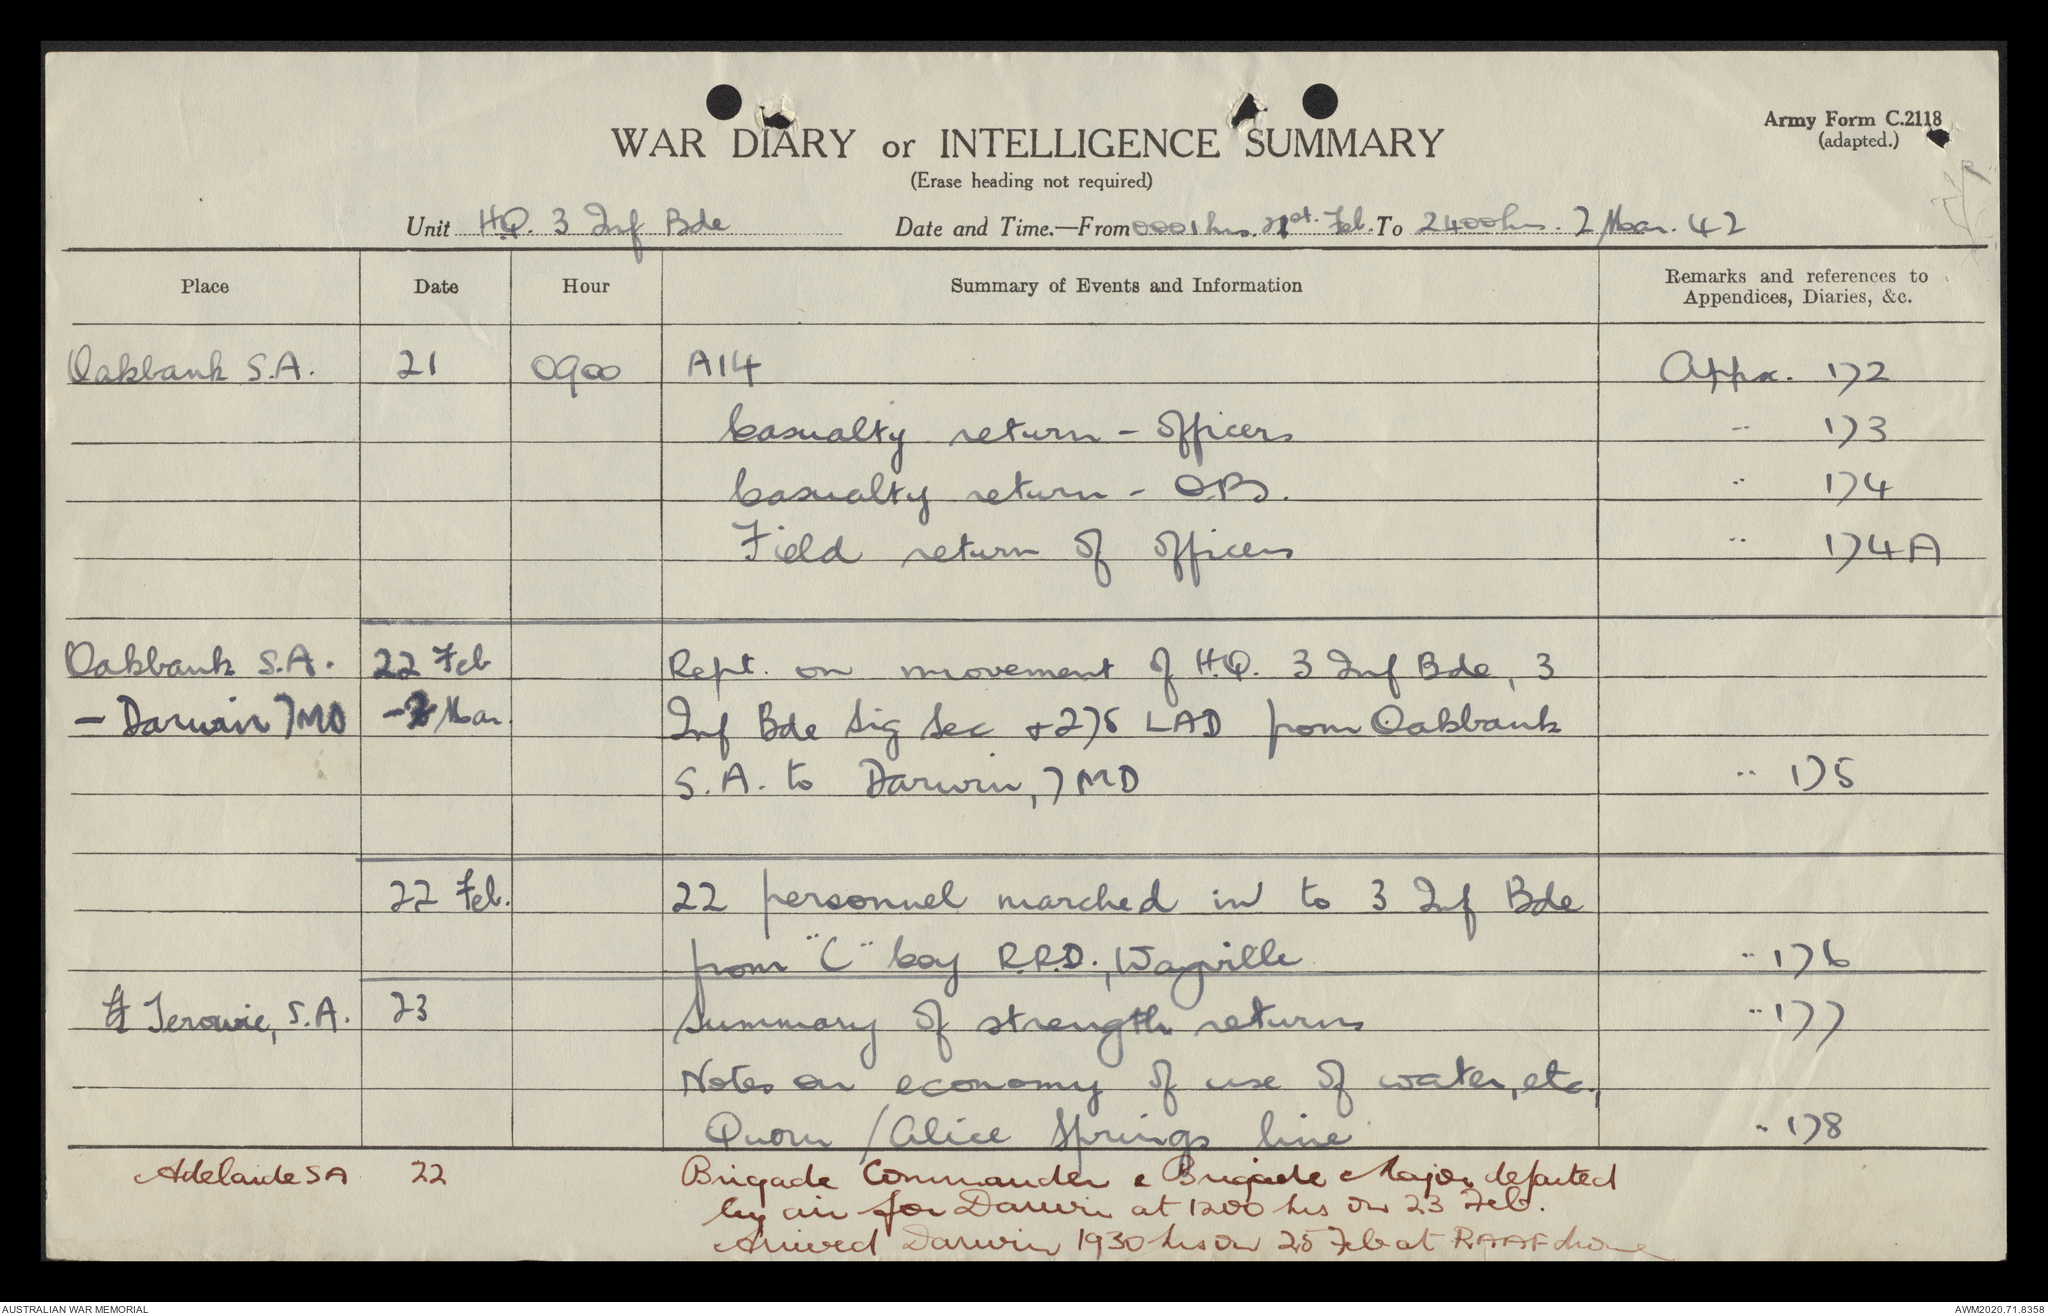 Army Form C.2118
(adapted.)
WAR DIARY or INTELLIGENCE SUMMARY
(Erase heading not required)
Unit H.Q. 3 Inf Bde Date and Time.—From 0001 hrs. 21st. Feb. To 2400 hrs. 2 Mar. 42
Place Date Hour Summary of Events and Information Remarks and references to
Appendices, Diaries, &c.
Oakbank S.A. 21 0900 A14 Appx. 172
Casualty return - Officers " 173
Casualty return - ORs. " 174
Field return of officers " 174A
Oakbank S.A. 22 Feb Rept. on movement of H.Q. 3 Inf Bde, 3
- Darwin 7MD -2 Mar. Inf Bde Sig Sec + 276 LAD from Oakbank
S.A. to Darwin, 7 MD " 175
22 Feb. 22 personnel marched in to 3 Inf Bde
from "C" Coy R.R.D., Wayville " 176
Terowie, S.A. 23 Summary of strength returns " 177
Notes on economy of use of water, etc.,
Quorn / Alice Springs line " 178
Adelaide SA 22 Brigade Commander & Brigade Major departed
by air for Darwin at 1200 hrs on 23 Feb.
Arrived Darwin 1930 hrs on 25 Feb at RAAF drome
AUSTRALIAN WAR MEMORIAL AWM2020.71.8358